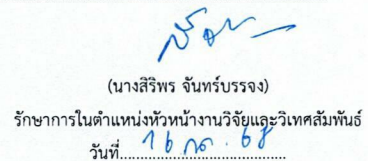 (นางสิริพร จันทร์บรรจง)
รักษาการในตำแหน่งหัวหน้างานวิจัยและวิเทศสัมพันธ์
วันที่ 16 กค. 68